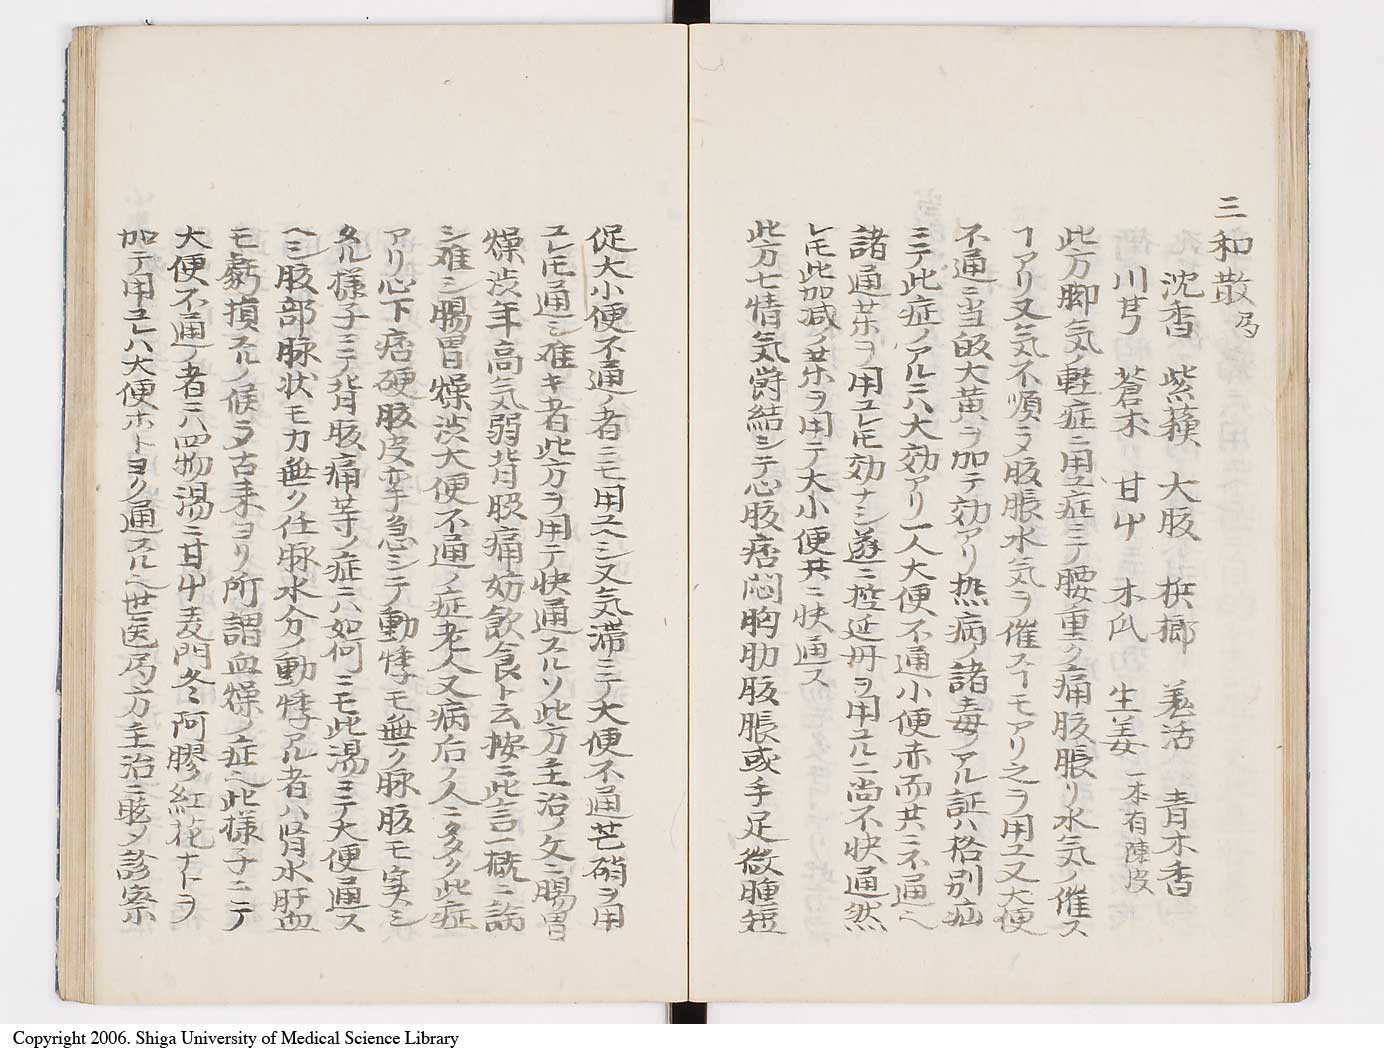 三和散 局
沈香 紫蘓 大腹 梹榔 羗活 青木香
川芎 蒼朮 甘艸 木瓜 生姜 一本有陳皮
此方脚気ノ軽症ニ用ユ症ニテ腰重ク痛腹脹リ水気ノ催ス
ヿアリ又気不順ヲ腹脹水気ヲ催スヿモアリ之ヲ用ユ又大便
不通ニ当皈大黄ヲ加テ効アリ熱病ノ諸毒ノアル証ハ格別疝
ニテ此症ノアルニハ大効アリ一人大便不通小便赤而共ニ不通ヘ
諸通藥ヲ用ユレ𪜈効ナシ遂ニ控延丹ヲ用ユルニ尚不快通然
レ𪜈此加减ノ藥ヲ用テ大小便共ニ快通ス
此方七情気欝結シテ心腹痞悶胸肋腹脹或手足微腫短
促大小便不通ノ者ニモ用ユヘシ又気滞ニテ大便不通芒硝ヲ用
ユレ𪜈通シ难キ者此方ヲ用テ快通スルソ此方主治ノ文ニ腸胃
燥渋年高気弱背股痛妨飲食ト云按ニ此言一概ニ論
シ难シ腸胃燥渋大便不通ノ症老人又病后ノ人ニ多ク此症
アリ心下痞硬腹皮牽急シテ動悸モ無ク脉腹モ実シ
タル様子ニテ背腹痛等ノ症ハ如何ニモ此湯ニテ大便通ス
ヘシ腹部脉状モ力無ク仕脉水分ノ動悸アル者ハ腎水肝血
モ虧損スルノ候ヲ古来ヨリ所謂血燥ノ症ヘ此様子ニテ
大便不通ノ者ニハ四物湯ニ甘艸麦門冬阿膠ノ紅花ナトヲ
加テ用ユレハ大便ホトヨク通スルヘ世医局方主治ニ眩タ診察